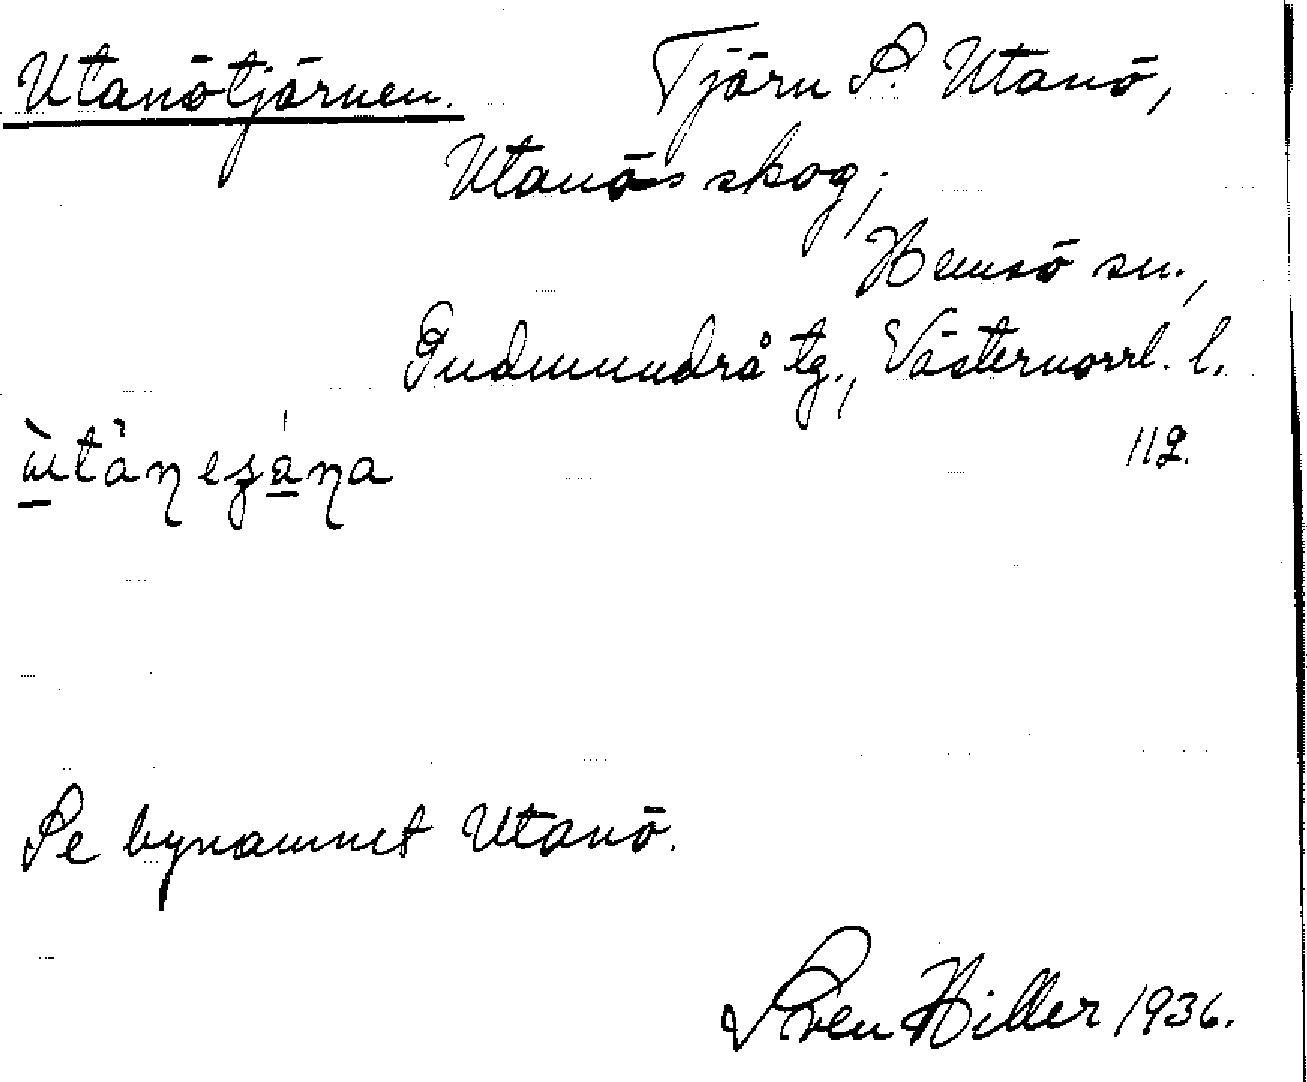 Utanötjärnen. Tjärn S. Utanö,
Utanös skog,
Hemsö sn.,
Gudmundrå tg., Västernorrl. l.
112.
Se bynamnet Utanö.
Sven Hiller 1936.